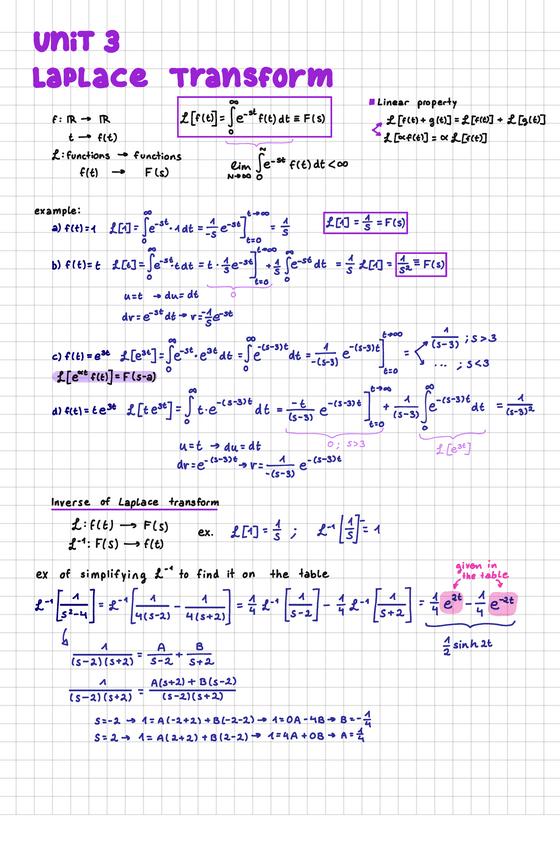 UNIT 3
LAPLACE TRANSFORM
f: ℝ → ℝ
t → f(t)
ℒ: functions → functions
f(t) → F(s)
ℒ[f(t)] = ∫₀^∞ e^-st f(t) dt ≡ F(s)
lim N→∞ ∫₀^N e^-st f(t) dt < ∞
Linear property
ℒ[f(t) + g(t)] = ℒ[f(t)] + ℒ[g(t)]
ℒ[∝f(t)] = ∝ ℒ[f(t)]
example:
a) f(t)=1 ℒ[1] = ∫₀^∞ e^-st · 1 dt = 1/-s e^-st ]_{t=0}^{t→∞} = 1/s ℒ[1] = 1/s = F(s)
b) f(t)=t ℒ[t] = ∫₀^∞ e^-st · t dt = t · 1/-s e^-st ]_{t=0}^{t→∞} + 1/s ∫₀^∞ e^-st dt = 1/s ℒ[1] = 1/s² ≡ F(s)
0
u=t → du=dt
dv=e^-st dt → v=-1/s e^-st
c) f(t)=e^3t ℒ[e^3t] = ∫₀^∞ e^-st · e^3t dt = ∫₀^∞ e^-(s-3)t dt = 1/-(s-3) e^-(s-3)t ]_{t=0}^{t→∞} = 1/(s-3) ; s>3
... ; s<3
ℒ[e^∝t f(t)] = F(s-a)
d) f(t)=t e^3t ℒ[t e^3t] = ∫₀^∞ t · e^-(s-3)t dt = -t/(s-3) e^-(s-3)t ]_{t=0}^{t→∞} + 1/(s-3) ∫₀^∞ e^-(s-3)t dt = 1/(s-3)²
0 ; s>3 ℒ[e^3t]
u=t → du=dt
dv=e^-(s-3)t → v= 1/-(s-3) e^-(s-3)t
Inverse of Laplace transform
ℒ: f(t) → F(s)
ℒ^-1: F(s) → f(t)
ex. ℒ[1] = 1/s ; ℒ^-1[1/s] = 1
ex of simplifying ℒ^-1 to find it on the table
given in
the table
ℒ^-1[1/s²-4] = ℒ^-1[1/4(s-2) - 1/4(s+2)] = 1/4 ℒ^-1[1/s-2] - 1/4 ℒ^-1[1/s+2] = 1/4 e^2t - 1/4 e^-2t
1/2 sinh 2t
1/(s-2)(s+2) = A/s-2 + B/s+2
1/(s-2)(s+2) = A(s+2) + B(s-2)/(s-2)(s+2)
s=-2 → 1= A(-2+2) + B(-2-2) → 1=0A - 4B → B=-1/4
s= 2 → 1= A(2+2) + B(2-2) → 1=4A + 0B → A=1/4